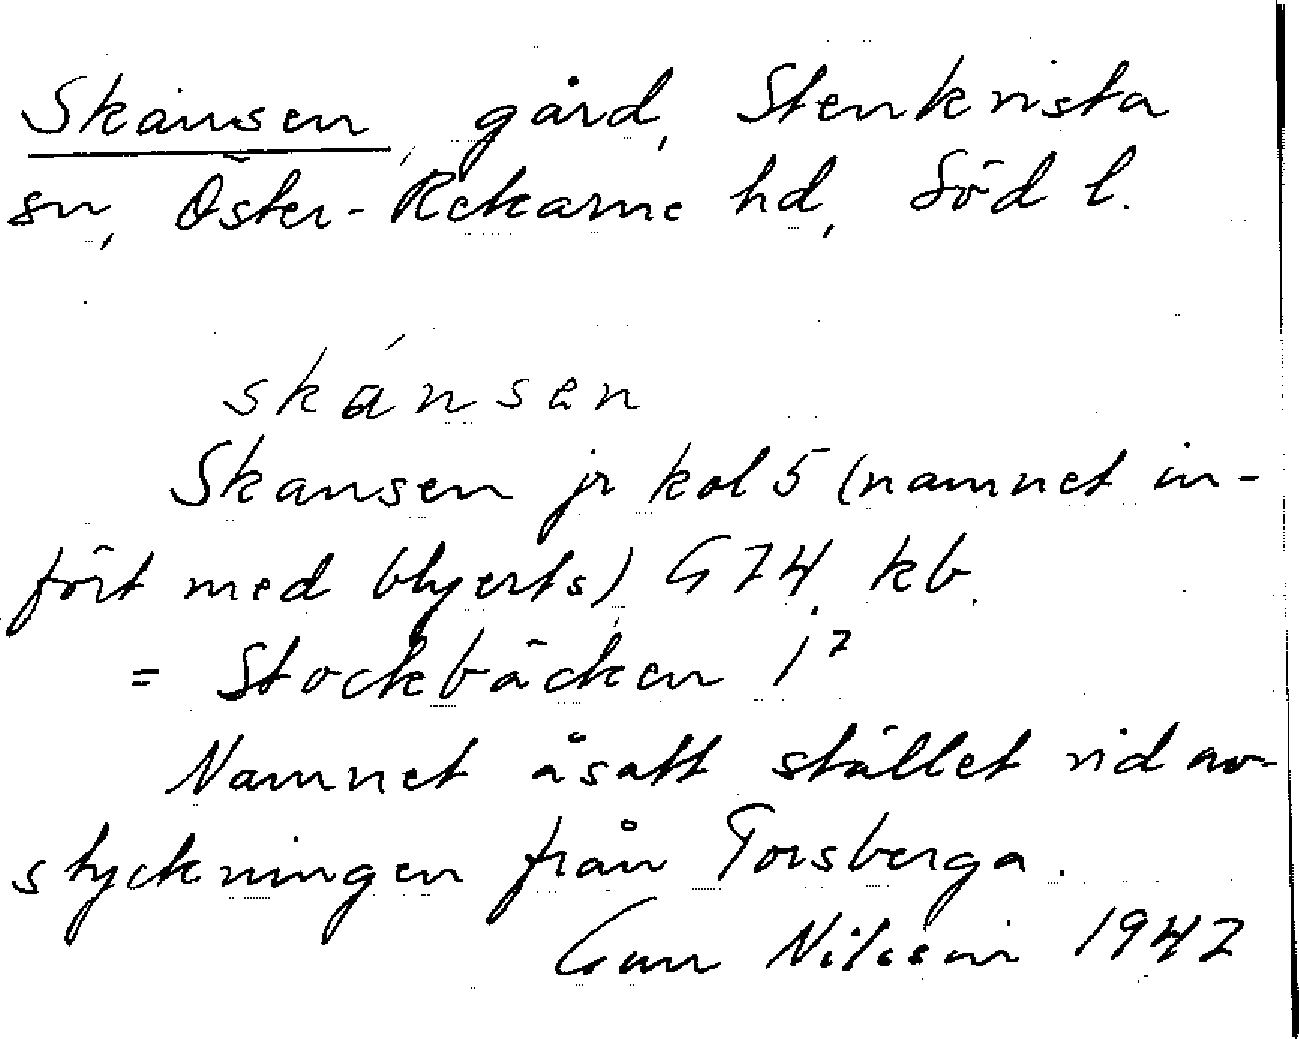 Skansen, gård, Stenkvista
sn, Öster-Rekarne hd, Söd l.
skánsen
Skansen jr kol 5 (namnet in-
fört med blyerts) G 74 kb.
= Stockbäcken 1²
Namnet åsatt stället vid av-
styckningen från Torsberga.
Gun Nilsson 1947